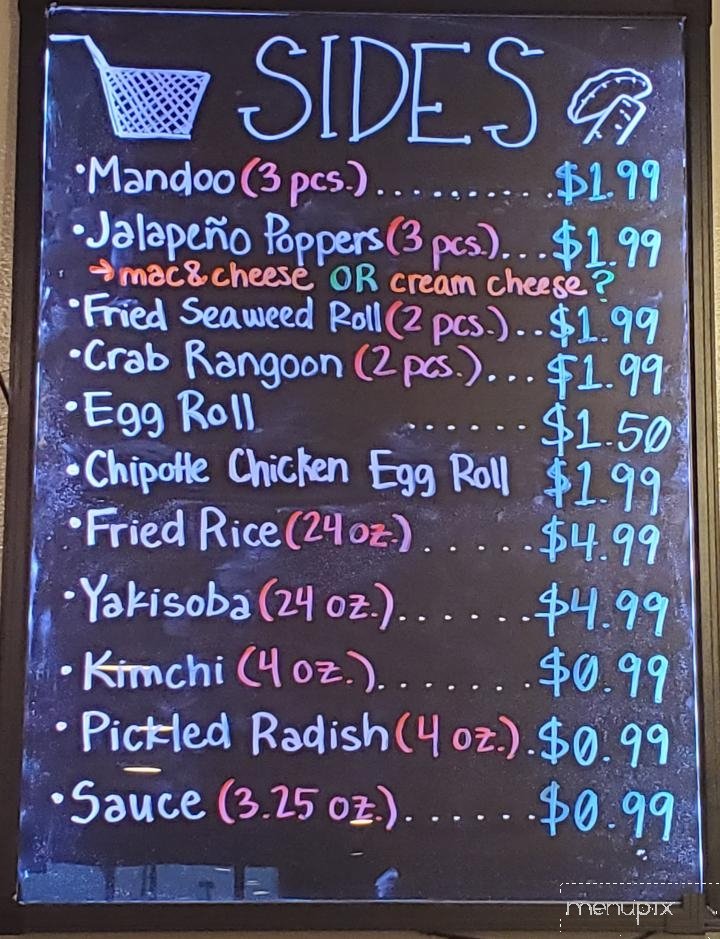 SIDES
•Mandoo (3 pcs.)..........$1.99
•Jalapeño Poppers (3 pcs.)...$1.99
→mac&cheese OR cream cheese?
•Fried Seaweed Roll (2 pcs.)..$1.99
•Crab Rangoon (2 pcs.)...$1.99
•Egg Roll ......$1.50
•Chipotle Chicken Egg Roll $1.99
•Fried Rice (24 oz.)......$4.99
•Yakisoba (24 oz.).......$4.99
•Kimchi (4 oz.).......$0.99
•Pickled Radish (4 oz.).$0.99
•Sauce (3.25 oz.)......$0.99
menupix